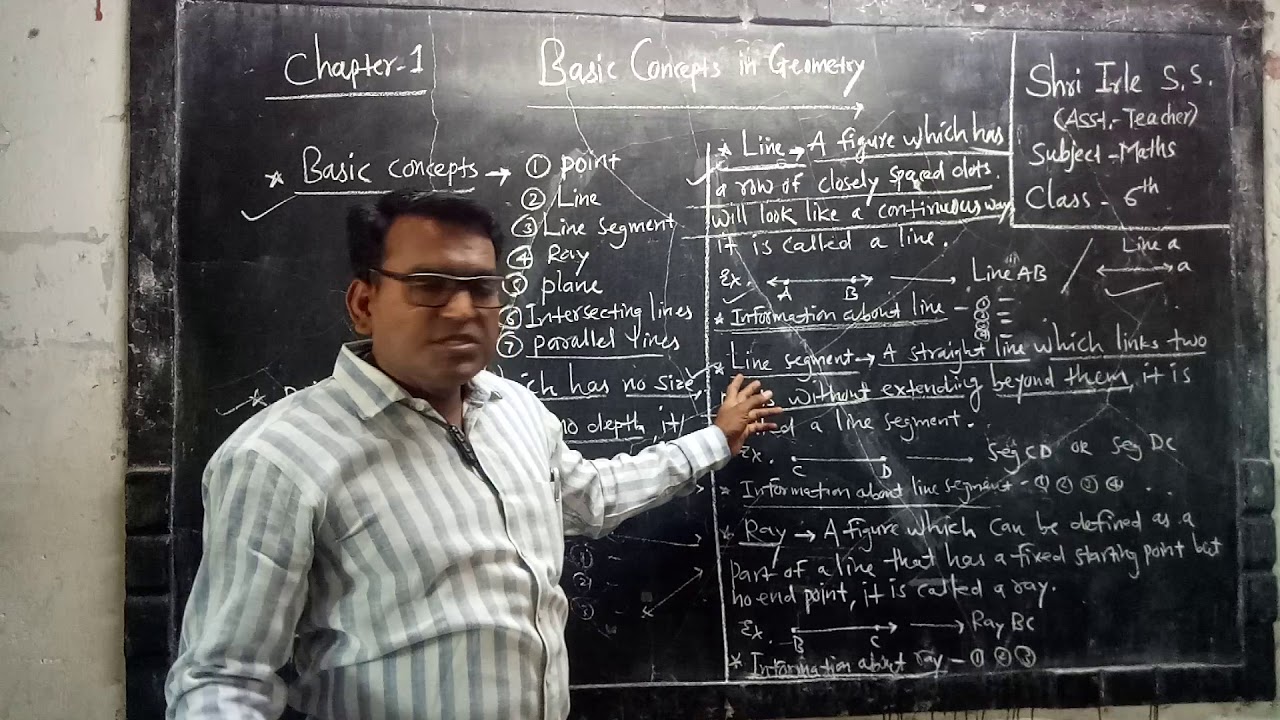 Chapter-1
Basic Concepts in Geometry
Shri Irle S.S.
(Asst.-Teacher)
Subject-Maths
Class - 6th
* Basic concepts → ① point
② Line
③ Line segment
④ Ray
⑤ plane
⑥ Intersecting lines
⑦ parallel lines
which has no size,
no depth, it
①
②
③
* Line → A figure which has
a row of closely spaced dots.
will look like a continuous way
it is called a line.
Ex. A B → Line AB / Line a
a
* Information about line - ①
②
③
④
* Line segment → A straight line which links two
without extending beyond them, it is
a line segment.
Ex. C D → Seg CD OR Seg DC
* Information about line segment - ① ② ③ ④ ...
* Ray → A figure which can be defined as a
part of a line that has a fixed starting point but
no end point, it is called a ray.
Ex. B C → Ray BC
* Information about ray - ① ② ③